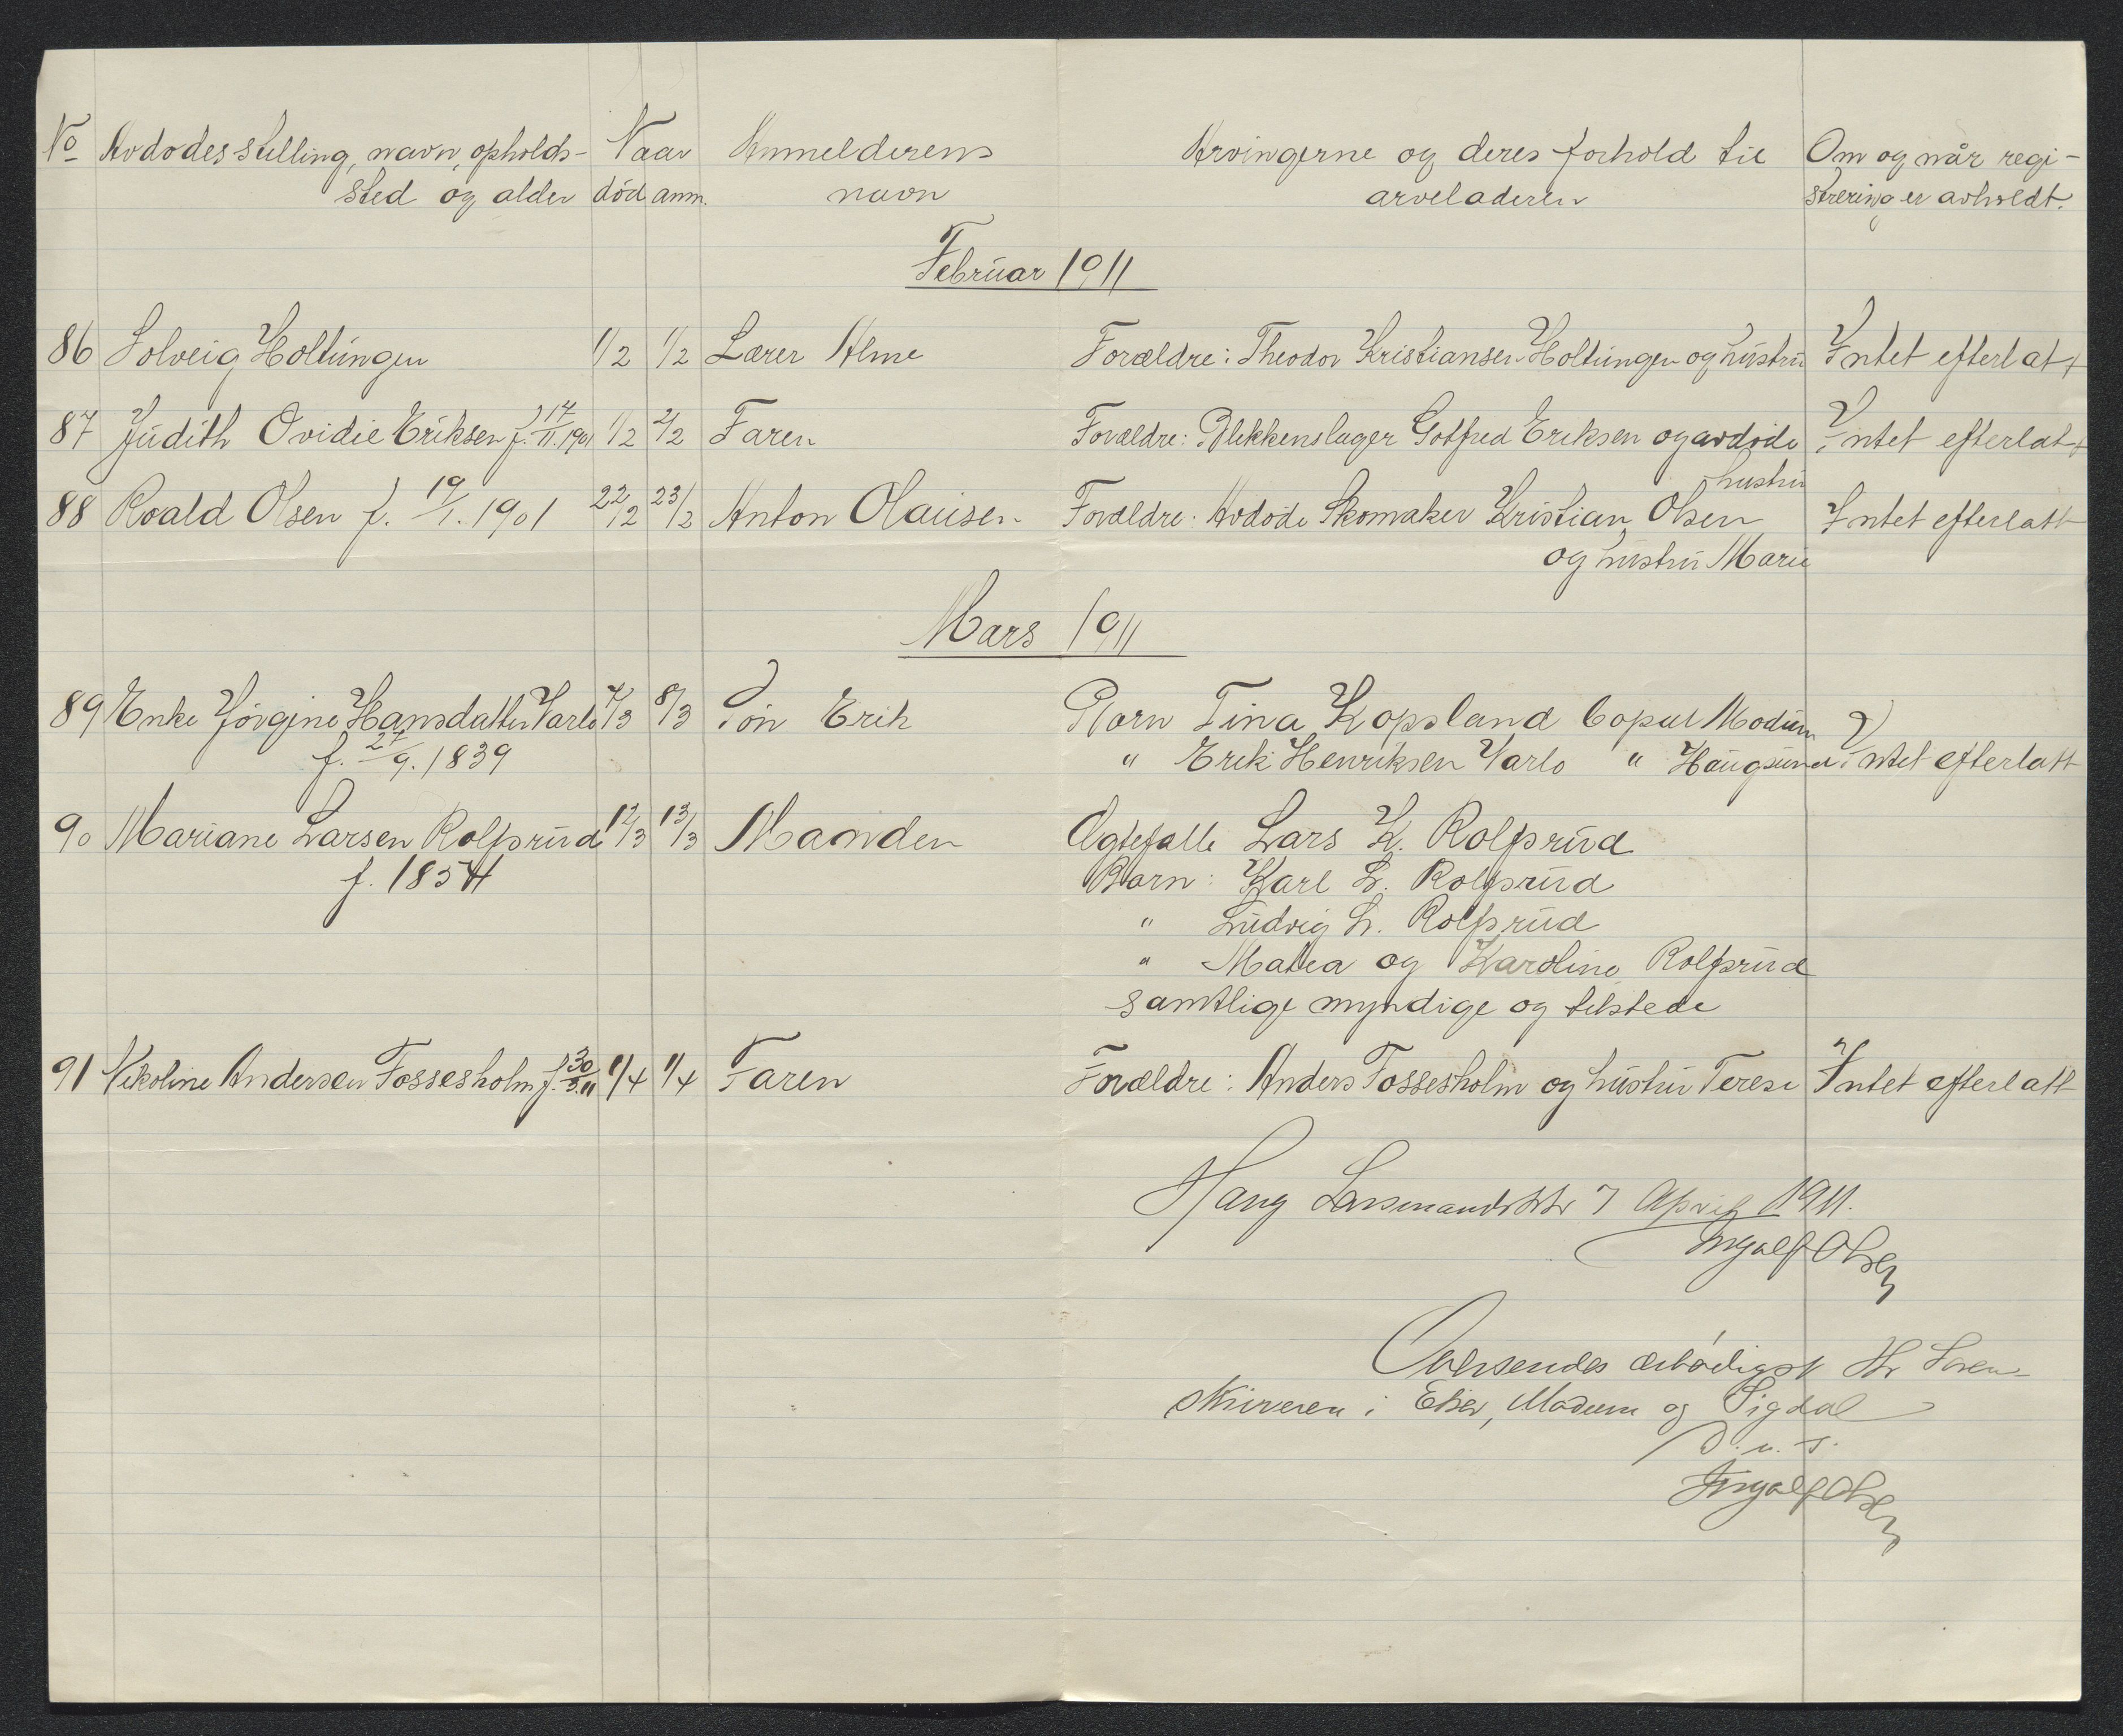 No Avdødes stilling, navn, opholds- Naar Anmelderens Arvingerne og deres forhold til Om og når regi-
sted og alder død anm. navn arveladeren strering er avholdt.
Februar 1911
86 Solveig Holtungen 1/2 1/2 Lærer Alme Forældre: Theodor Kristiansen Holtungen og hustru Intet efterlatt
87 Judith Ovidie Eriksen f. 17/11. 1901 1/2 2/2 Faren Forældre: Blikkenslager Gotfred Eriksen og avdøde Intet efterlatt
hustru
88 Roald Olsen f. 19/1. 1901 22/2 23/2 Anton Olausen Forældre: Avdøde Skomaker Kristian Olsen Intet efterlatt
og hustru Marie
Mars 1911
89 Enke Jørgine Hansdatter Varlo 7/3 8/3 Søn Erik Barn Tina Kopsland Copul Modum
f. 27/9. 1839 " Erik Henriksen Varlo " Haugsund Intet efterlatt
90 Mariane Larsen Rolfsrud 12/3 13/3 Manden Ægtefælle Lars K. Rolfsrud
f. 1854 Barn: Karl L. Rolfsrud
" Ludvig L. Rolfsrud
" Matea og Karoline Rolfsrud
samtlige myndige og tilstede
91 Nikoline Andersen Fossesholm f. 30/3.11 1/4 1/4 Faren Forældre: Anders Fossesholm og hustru Terese Intet efterlatt
Haug 7 April 1911.
Ingolf Olsen
Oversendes ærbødigst Hr Soren-
skriveren i Eker, Modum og Sigdal
D. u. s.
Ingolf Olsen